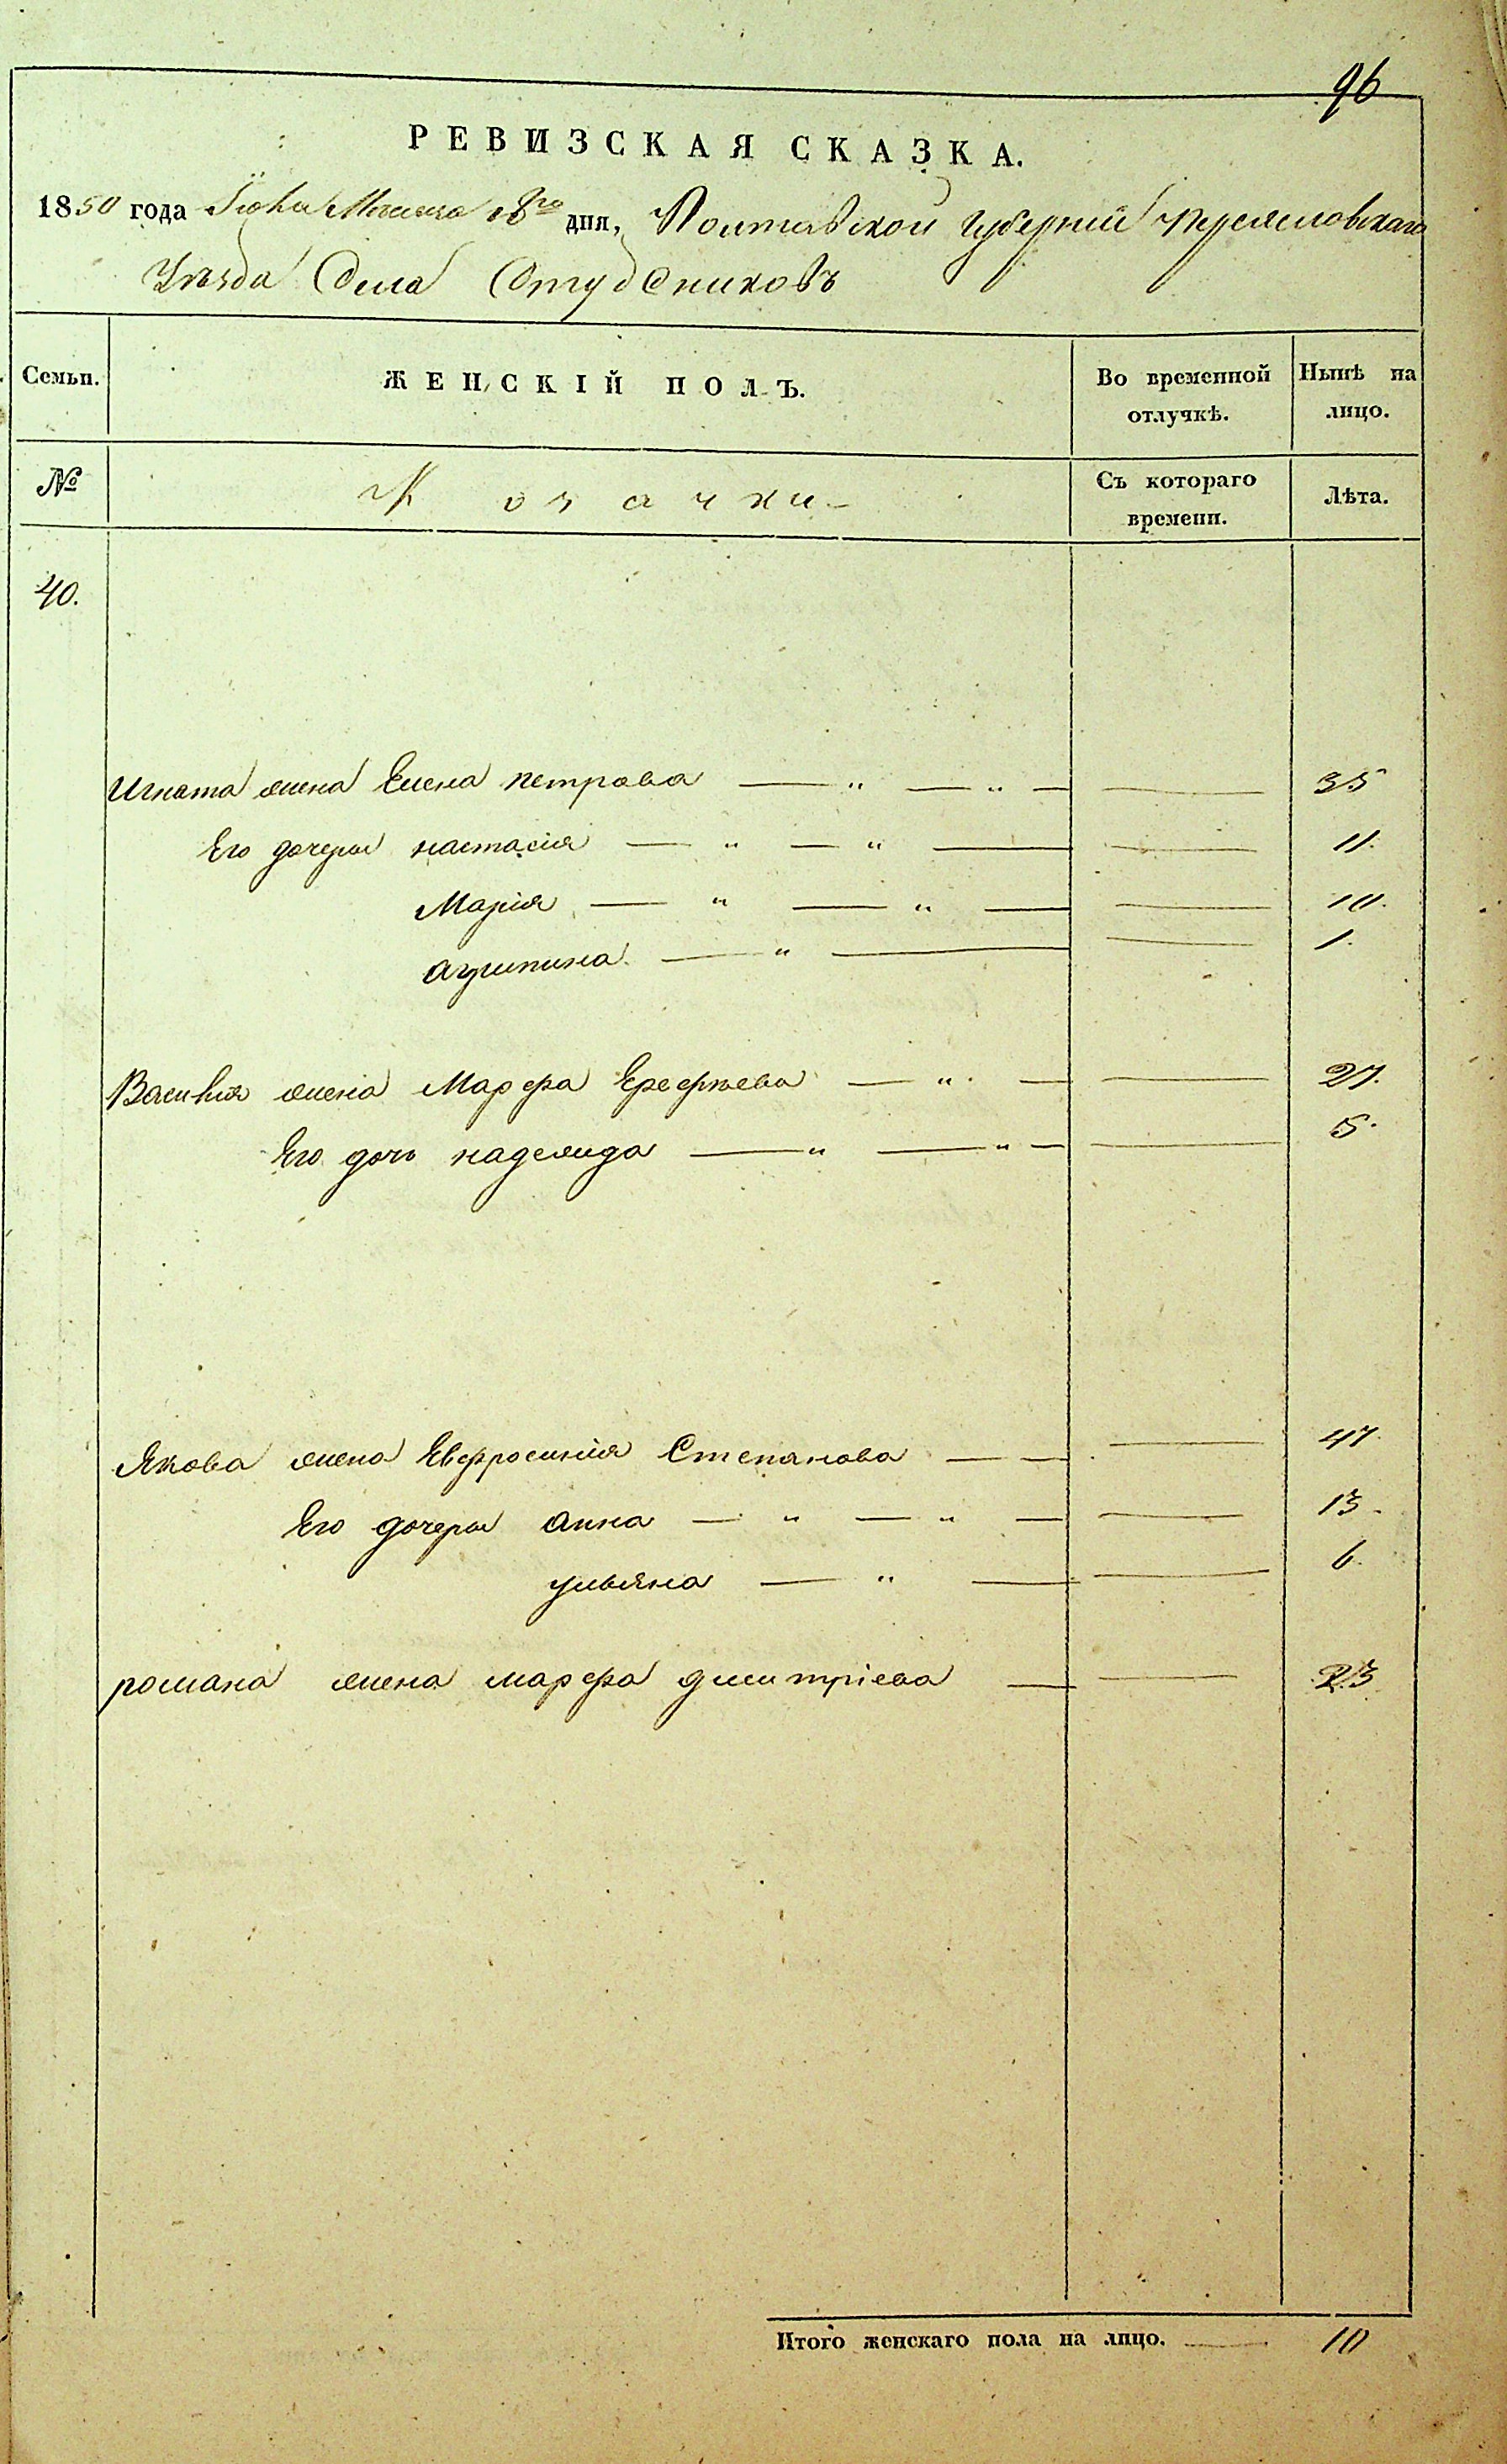 96
РЕВИЗСКАЯ СКАЗКА.
1850 года Іюня Месяца 18го дня, Полтавской Губерніи Переясловскаго
Уѣзда Села Студениковъ
Семьи. ЖЕНСКІЙ ПОЛЪ. Во временной отлучкѣ. Нынѣ на лицо.
№ Козачки Съ котораго времени. Лѣта.
40.
Игната жена Елена петрова — " — " — — 35
Его дочери настасія — " — " — — 11.
Марія — " — " — — 10.
агрипина — " — — 1.
Василія жена Марфа Ерефѣева — " — — 27.
Его дочь надежда — " — " — — 5.
Якова жена Евфросинія Степанова — — — 47.
Его дочери анна — " — " — — 13.
ульяна — " — — 6.
романа жена марфа дмитріева — — 23
Итого женскаго пола на лицо. — 10